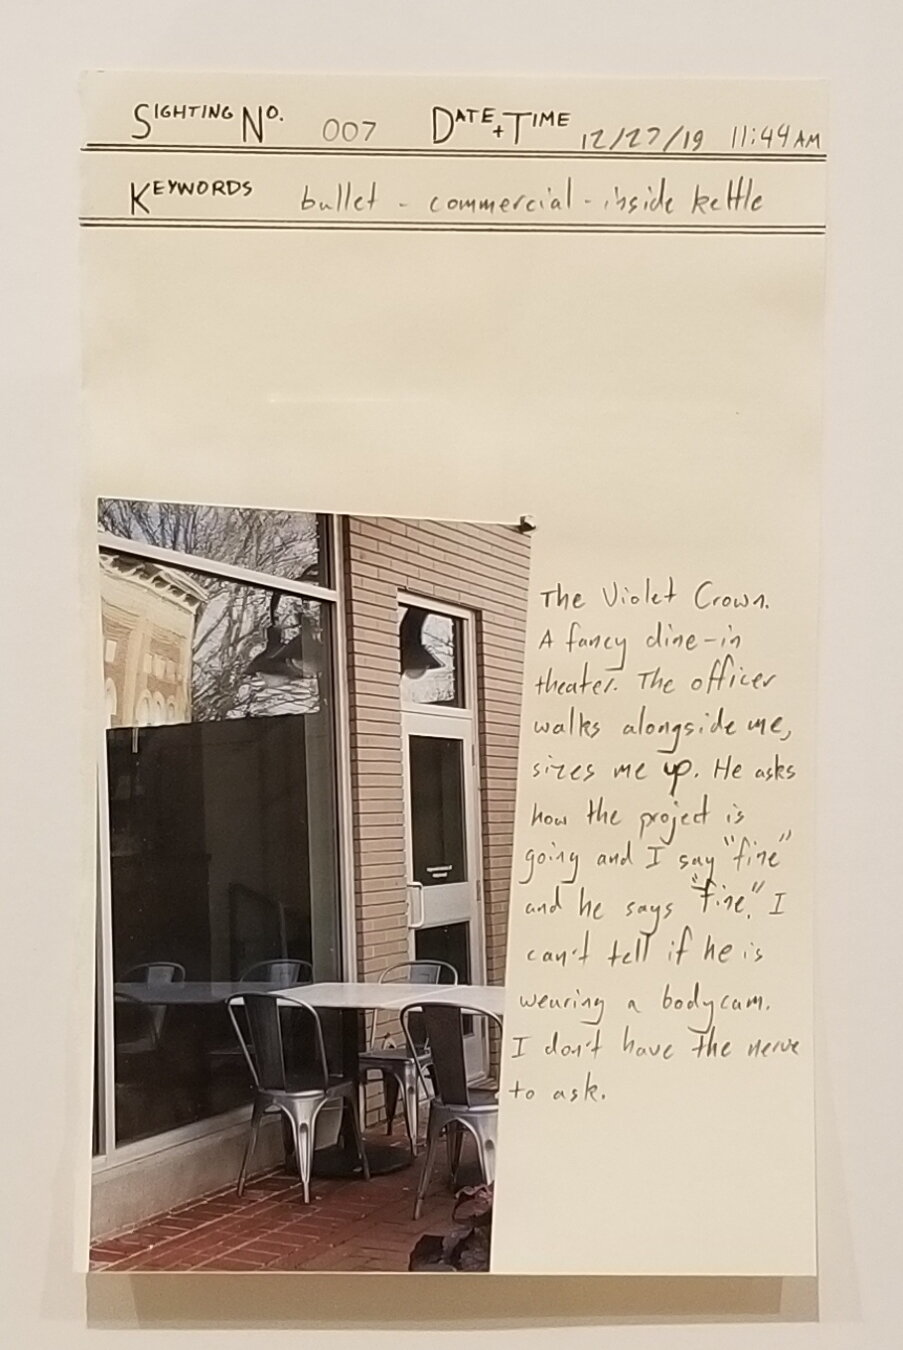 SIGHTING NO. 007 DATE + TIME 12/27/19 11:44 AM
KEYWORDS bullet - commercial - inside kettle
The Violet Crown.
A fancy dine-in
theater. The officer
walks alongside me,
sizes me up. He asks
how the project is
going and I say "fine"
and he says "fine." I
can't tell if he is
wearing a bodycam.
I don't have the nerve
to ask.